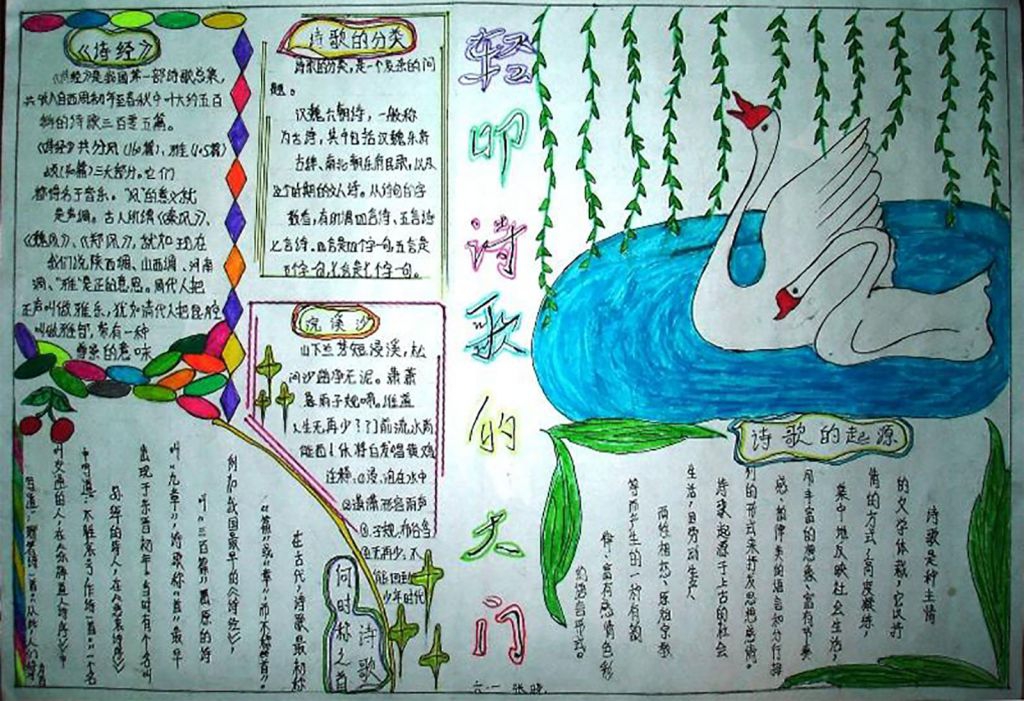 《诗经》
《诗经》是我国第一部诗歌总集，
共收入自西周初年至春秋中叶大约五百
的诗歌三百零五篇。
《诗经》共分风（160篇）、雅（105篇）
三大部分。它们
都得名于音乐。“风”的意义就
是声调。古人所谓《秦风》、
《魏风》、《郑风》，就如现在
我们说陕西调、山西调、河南
调。“雅”是正的意思。周代人把
正声叫做雅乐，犹如清代人把昆腔
叫做雅部，带有一种
尊崇的意味
诗歌的分类
诗歌的分类，是一个复杂的问
题。
汉魏六朝诗，一般称
为古诗，其中包括汉魏乐府
古辞、南北朝乐府民歌，以及
这个时期的文人诗。从诗句的字
数看，有所谓四言诗、五言诗
七言诗。四言是四个字一句五言是
五个字一句，七言是七个字一句。
浣溪沙
山下兰芽短浸溪，松
间沙路净无泥。萧萧
暮雨子规啼。谁道
人生无再少？门前流水尚
能西！休将白发唱黄鸡
注释：①浸：泡在水中
②潇潇形容雨声
③子规：布谷鸟
④无再少：不
能回到
少年时代
轻叩诗歌的大门
诗歌的起源
诗歌是一种主情
的文学体裁，它以抒
情的方式，高度凝练，
集中地反映社会生活，
用丰富的想象、富有节奏
感、韵律美的语言和分行排
列的形式来抒发思想感情。
诗歌起源于上古的社会
生活，因劳动生产
两性相恋、原始宗教
等而产生的一种有韵
律、富有感情色彩
的语言形式。
何时称之首
诗歌
在古代，诗歌最初称
“篇”或“章”，而不称“首”。
例如我国最早的《诗经》
叫“三百篇”屈原的诗
叫“九章”，诗歌称“首”最早
出现于东晋初年。当时有个名叫
孙绰的诗人，在《悲哀诗序》
中写道：“不胜哀号，作诗一首”一个名
六一 张晓